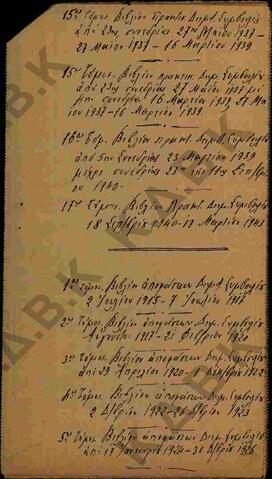 15ος Τόμος Βιβλίον Πρακτικ. Δημ. Συμβουλίου
από 23ης συνεδρίας 27ης Μαΐου 1937 -
27 Μαΐου 1937 - 16 Μαρτίου 1939
15ος Τόμος. Βιβλίον πρακτικ. Δημ. Συμβουλίου
από 23ης συνεδρίας 27 Μαΐου 1937 με
συνεδρία 16 Μαρτίου 1939 27 Μα
ΐου 1937 - 16 Μαρτίου 1939
16ος Τόμ. Βιβλίον Πρακτ. Δημ. Συμβουλίου
από 5ης Συνεδρίας 23 Μαρτίου 1939
μέχρι συνεδρίας 23ης της 11ης Σεπτεμβρ
ίου 1940 -
17ος Τόμος. Βιβλίον Πρακτ. Δημ. Συμβουλίου
18 Σεπτεμβρίου 1940 - 17 Μαρτίου 1943
1ος Τόμος. Βιβλίον αποφάσεων Δημ. Συμβουλίου
2 Ιουλίου 1915 - 7 Ιουλίου 1917
2ος Τόμος. Βιβλίον αποφάσεων Δημ. Συμβουλίου
Αύγουστο 1917 - 21 Φεβρ/ου 1920
3ος Τόμος. Βιβλίον αποφάσεων Δημ. Συμβουλίου
από 23 Απριλίου 1920 - 1 1922
4ος Τόμος. Βιβλίον αποφάσεων Δημ. Συμβουλίου
2 1922 - 26 1923
5ος Τόμ. Βιβλίον αποφάσεων Δημ. Συμβουλίου
από 17 Ιανουαρίου 1924 - 31 1926